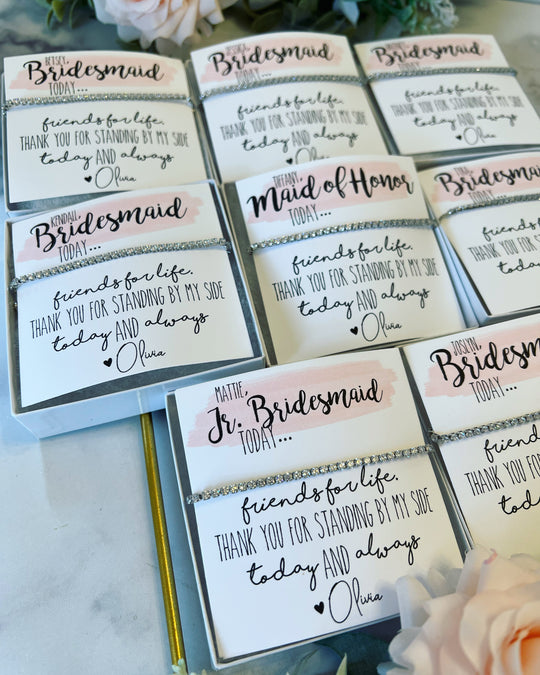 BETSEY,
Bridesmaid
TODAY...
friends for life.
THANK YOU FOR STANDING BY MY SIDE
today AND always
♥ Olivia
JESSICA,
Bridesmaid
TODAY...
friends for life.
THANK YOU FOR STANDING BY MY SIDE
today AND always
♥ Olivia
Bridesmaid
TODAY...
friends for life.
THANK YOU FOR STANDING BY MY SIDE
today AND always
♥ Olivia
KENDALL,
Bridesmaid
TODAY...
friends for life.
THANK YOU FOR STANDING BY MY SIDE
today AND always
♥ Olivia
TIFFANY,
Maid of Honor
TODAY...
friends for life.
THANK YOU FOR STANDING BY MY SIDE
today AND always
♥ Olivia
Bridesma
TODAY...
friends fo
THANK YOU FOR STAN
today A
MATTIE,
Jr. Bridesmaid
TODAY...
friends for life.
THANK YOU FOR STANDING BY MY SIDE
today AND always
♥ Olivia
JOSLYN,
Bridesm
TODAY...
friends
THANK YOU FO
today